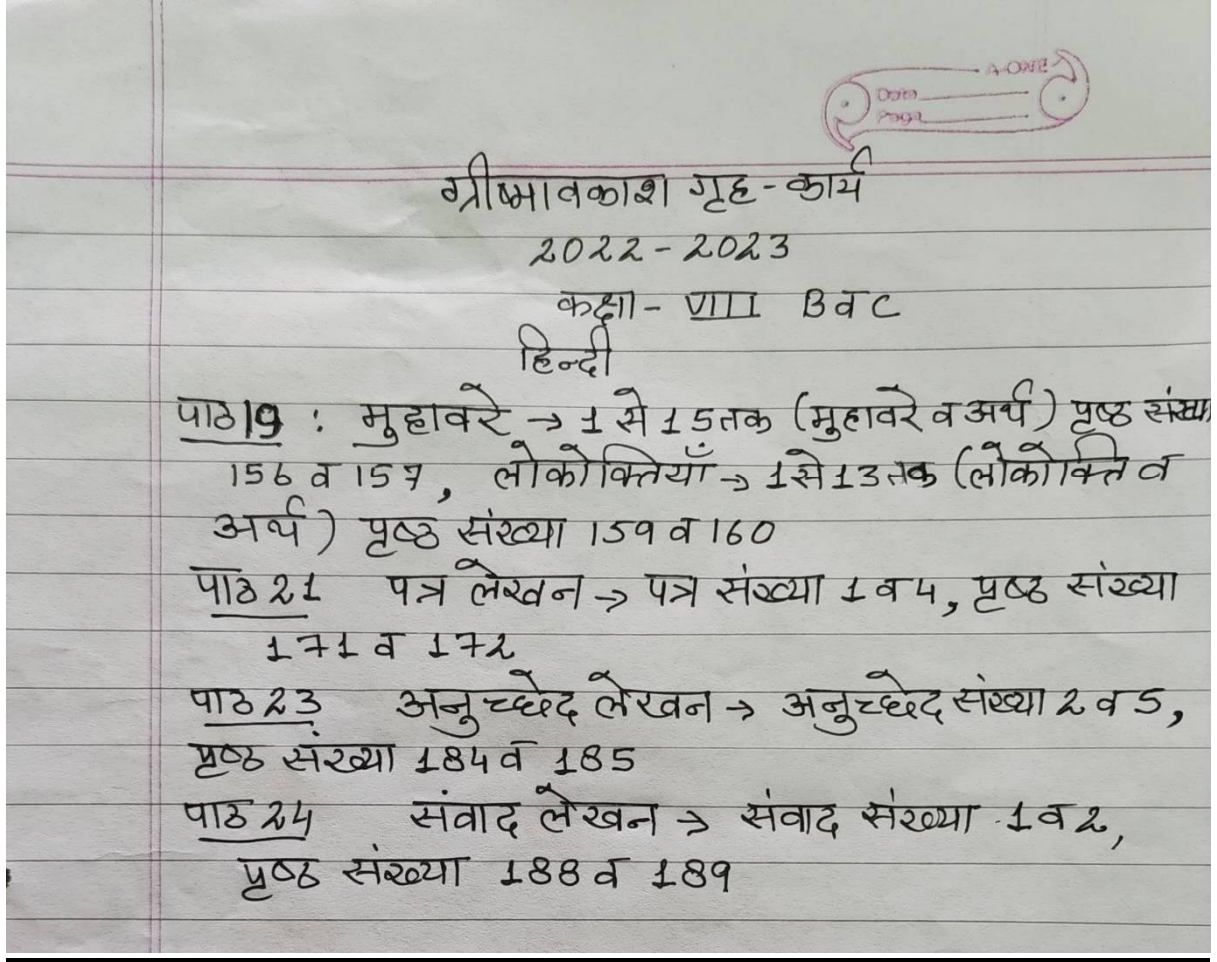 A-ONE
Date
Page
ग्रीष्मावकाश गृह-कार्य
2022-2023
कक्षा- VIII B व C
हिन्दी
पाठ19 : मुहावरे → 1 से 15 तक (मुहावरे व अर्थ) पृष्ठ संख्या
156 व 157, लोकोक्तियाँ → 1 से 13 तक (लोकोक्ति व
अर्थ) पृष्ठ संख्या 159 व 160
पाठ 21 पत्र लेखन → पत्र संख्या 1 व 4, पृष्ठ संख्या
171 व 172
पाठ 23 अनुच्छेद लेखन → अनुच्छेद संख्या 2 व 5,
पृष्ठ संख्या 184 व 185
पाठ 24 संवाद लेखन → संवाद संख्या 1 व 2,
पृष्ठ संख्या 188 व 189